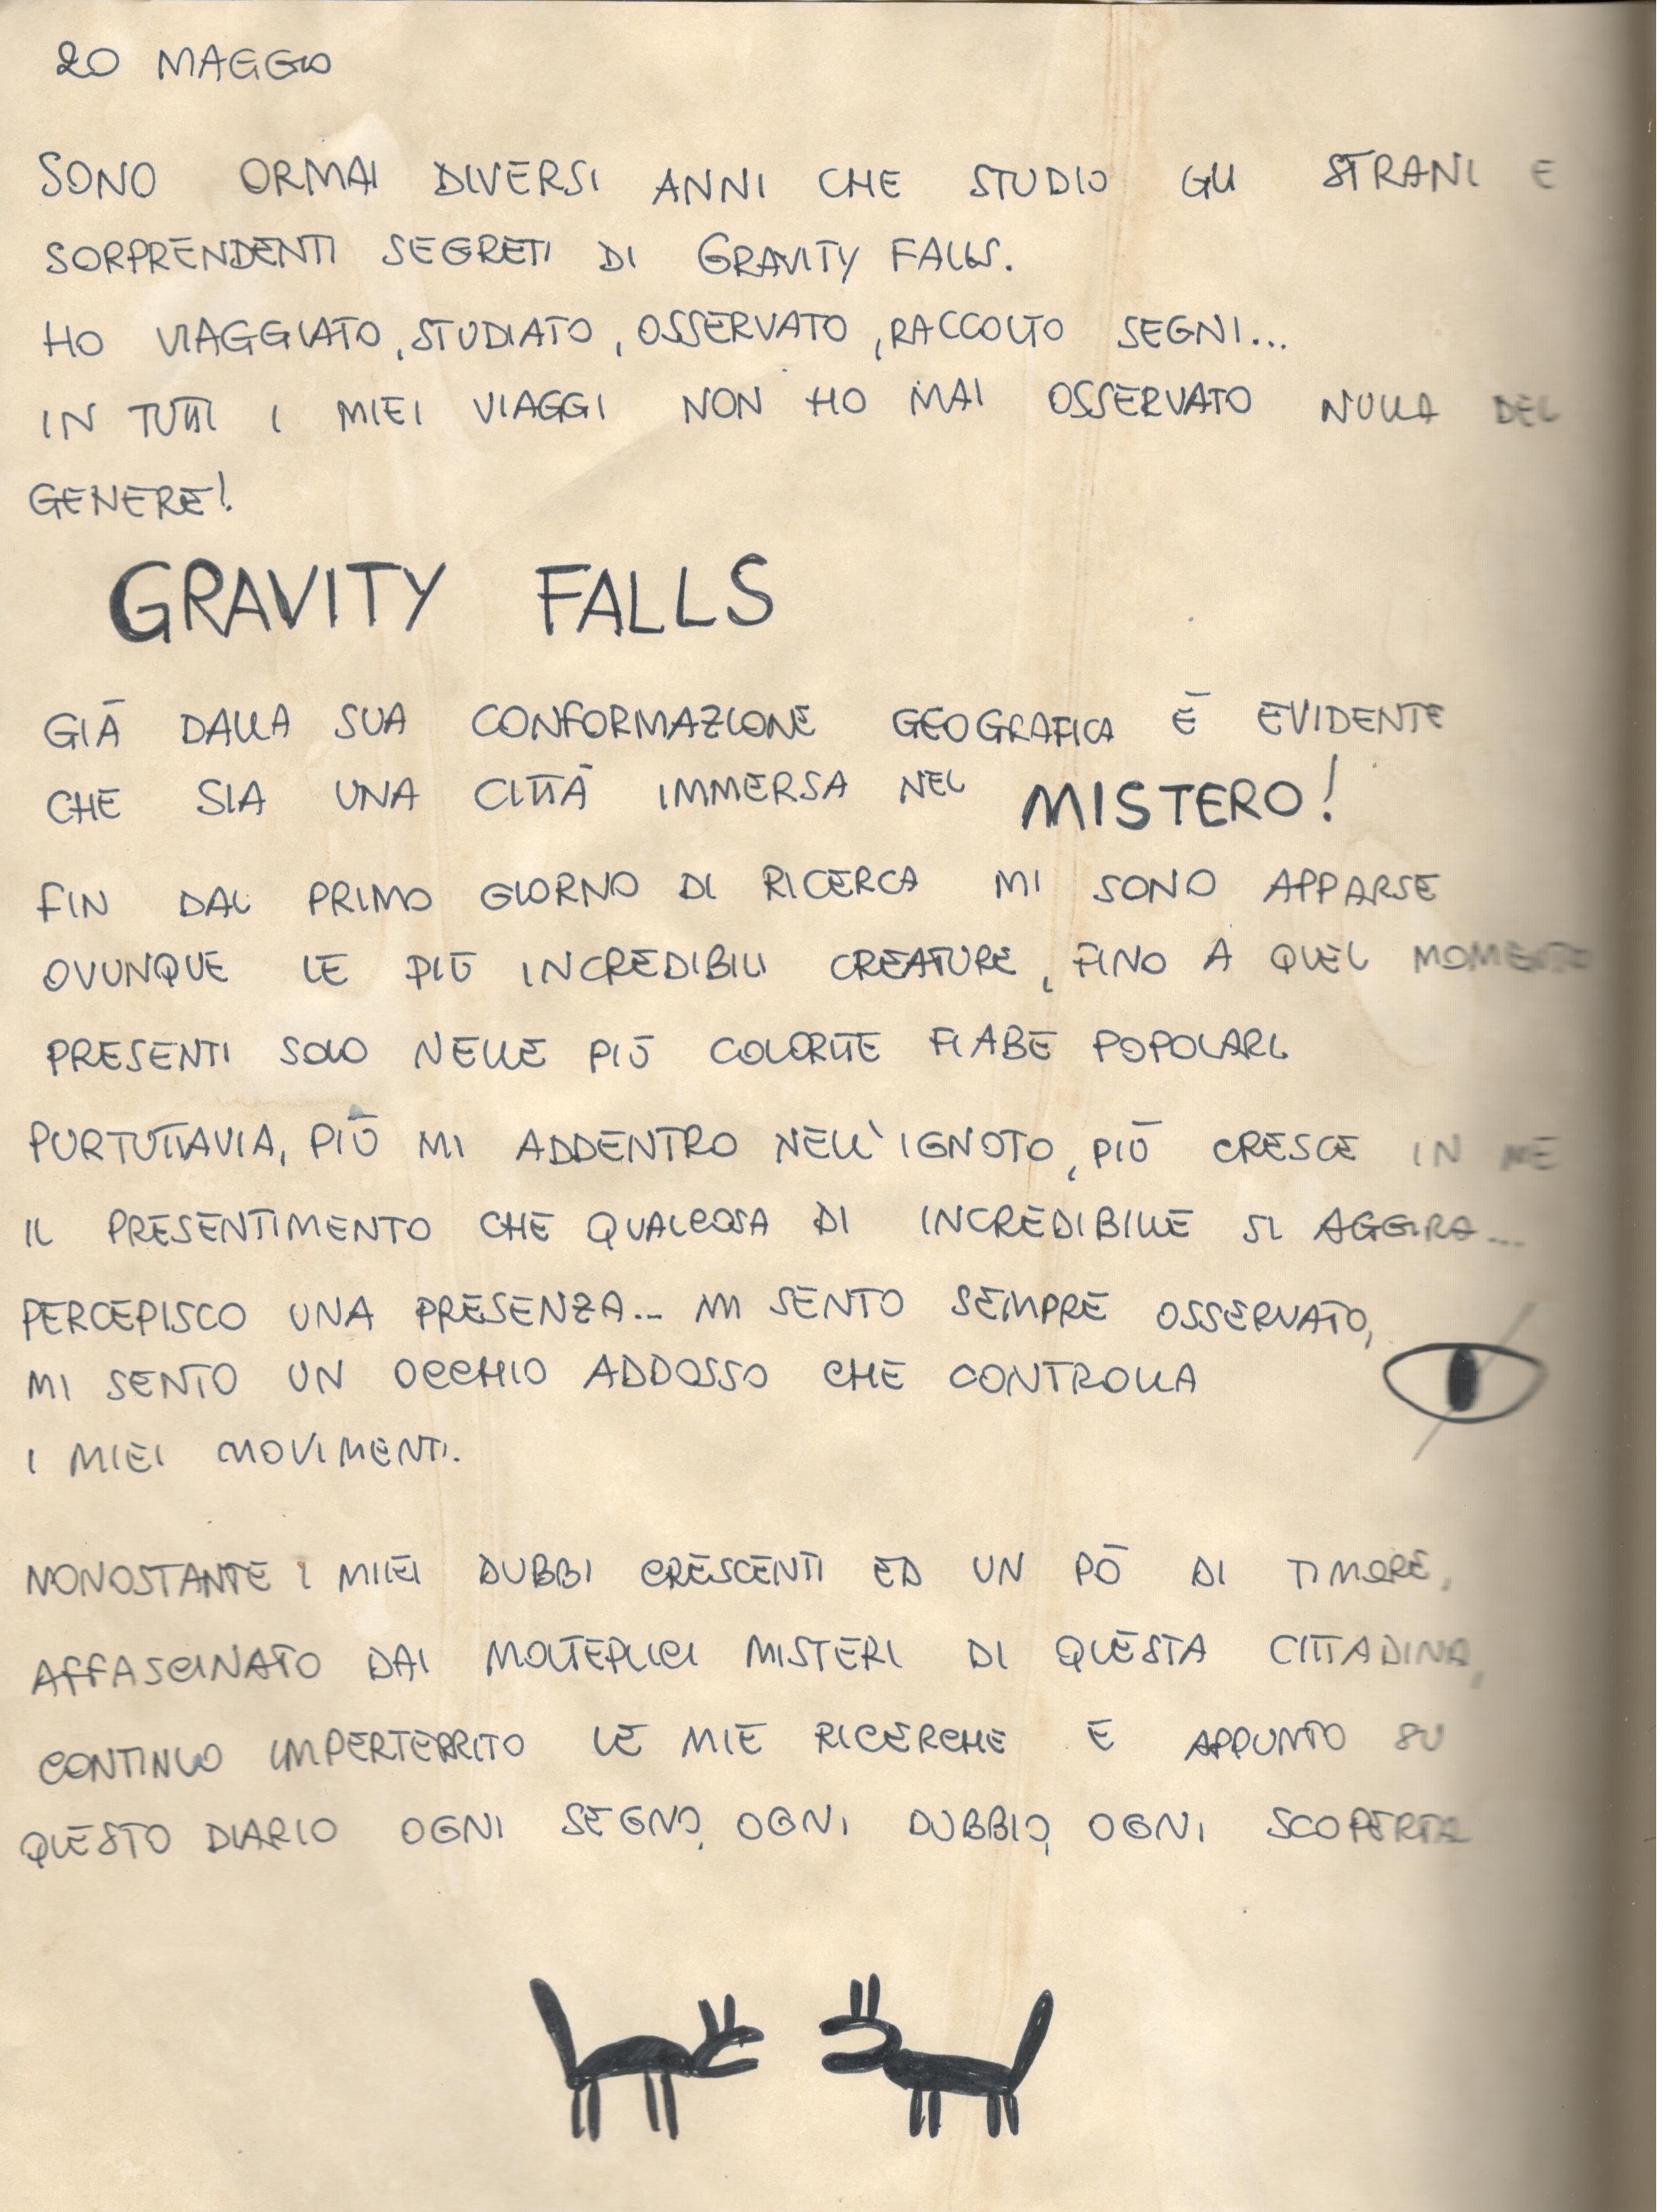 20 MAGGIO
SONO ORMAI DIVERSI ANNI CHE STUDIO GLI STRANI E
SORPRENDENTI SEGRETI DI GRAVITY FALLS.
HO VIAGGIATO, STUDIATO, OSSERVATO, RACCOLTO SEGNI...
IN TUTTI I MIEI VIAGGI NON HO MAI OSSERVATO NULLA DEL
GENERE!
GRAVITY FALLS
GIÀ DALLA SUA CONFORMAZIONE GEOGRAFICA È EVIDENTE
CHE SIA UNA CITTÀ IMMERSA NEL MISTERO!
FIN DAL PRIMO GIORNO DI RICERCA MI SONO APPARSE
OVUNQUE LE PIÙ INCREDIBILI CREATURE, FINO A QUEL MOMENTO
PRESENTI SOLO NELLE PIÙ COLORITE FIABE POPOLARI.
PURTUTTAVIA, PIÙ MI ADDENTRO NELL'IGNOTO, PIÙ CRESCE IN ME
IL PRESENTIMENTO CHE QUALCOSA DI INCREDIBILLE SI AGGIRA...
PERCEPISCO UNA PRESENZA... MI SENTO SEMPRE OSSERVATO,
MI SENTO UN OCCHIO ADDOSSO CHE CONTROLLA
I MIEI MOVIMENTI.
NONOSTANTE I MIEI DUBBI CRESCENTI ED UN PÒ DI TIMORE,
AFFASCINATO DAI MOLTEPLICI MISTERI DI QUESTA CITTADINA,
CONTINUO IMPERTERRITO LE MIE RICERCHE E APPUNTO SU
QUESTO DIARIO OGNI SEGNO, OGNI DUBBIO, OGNI SCOPERTA